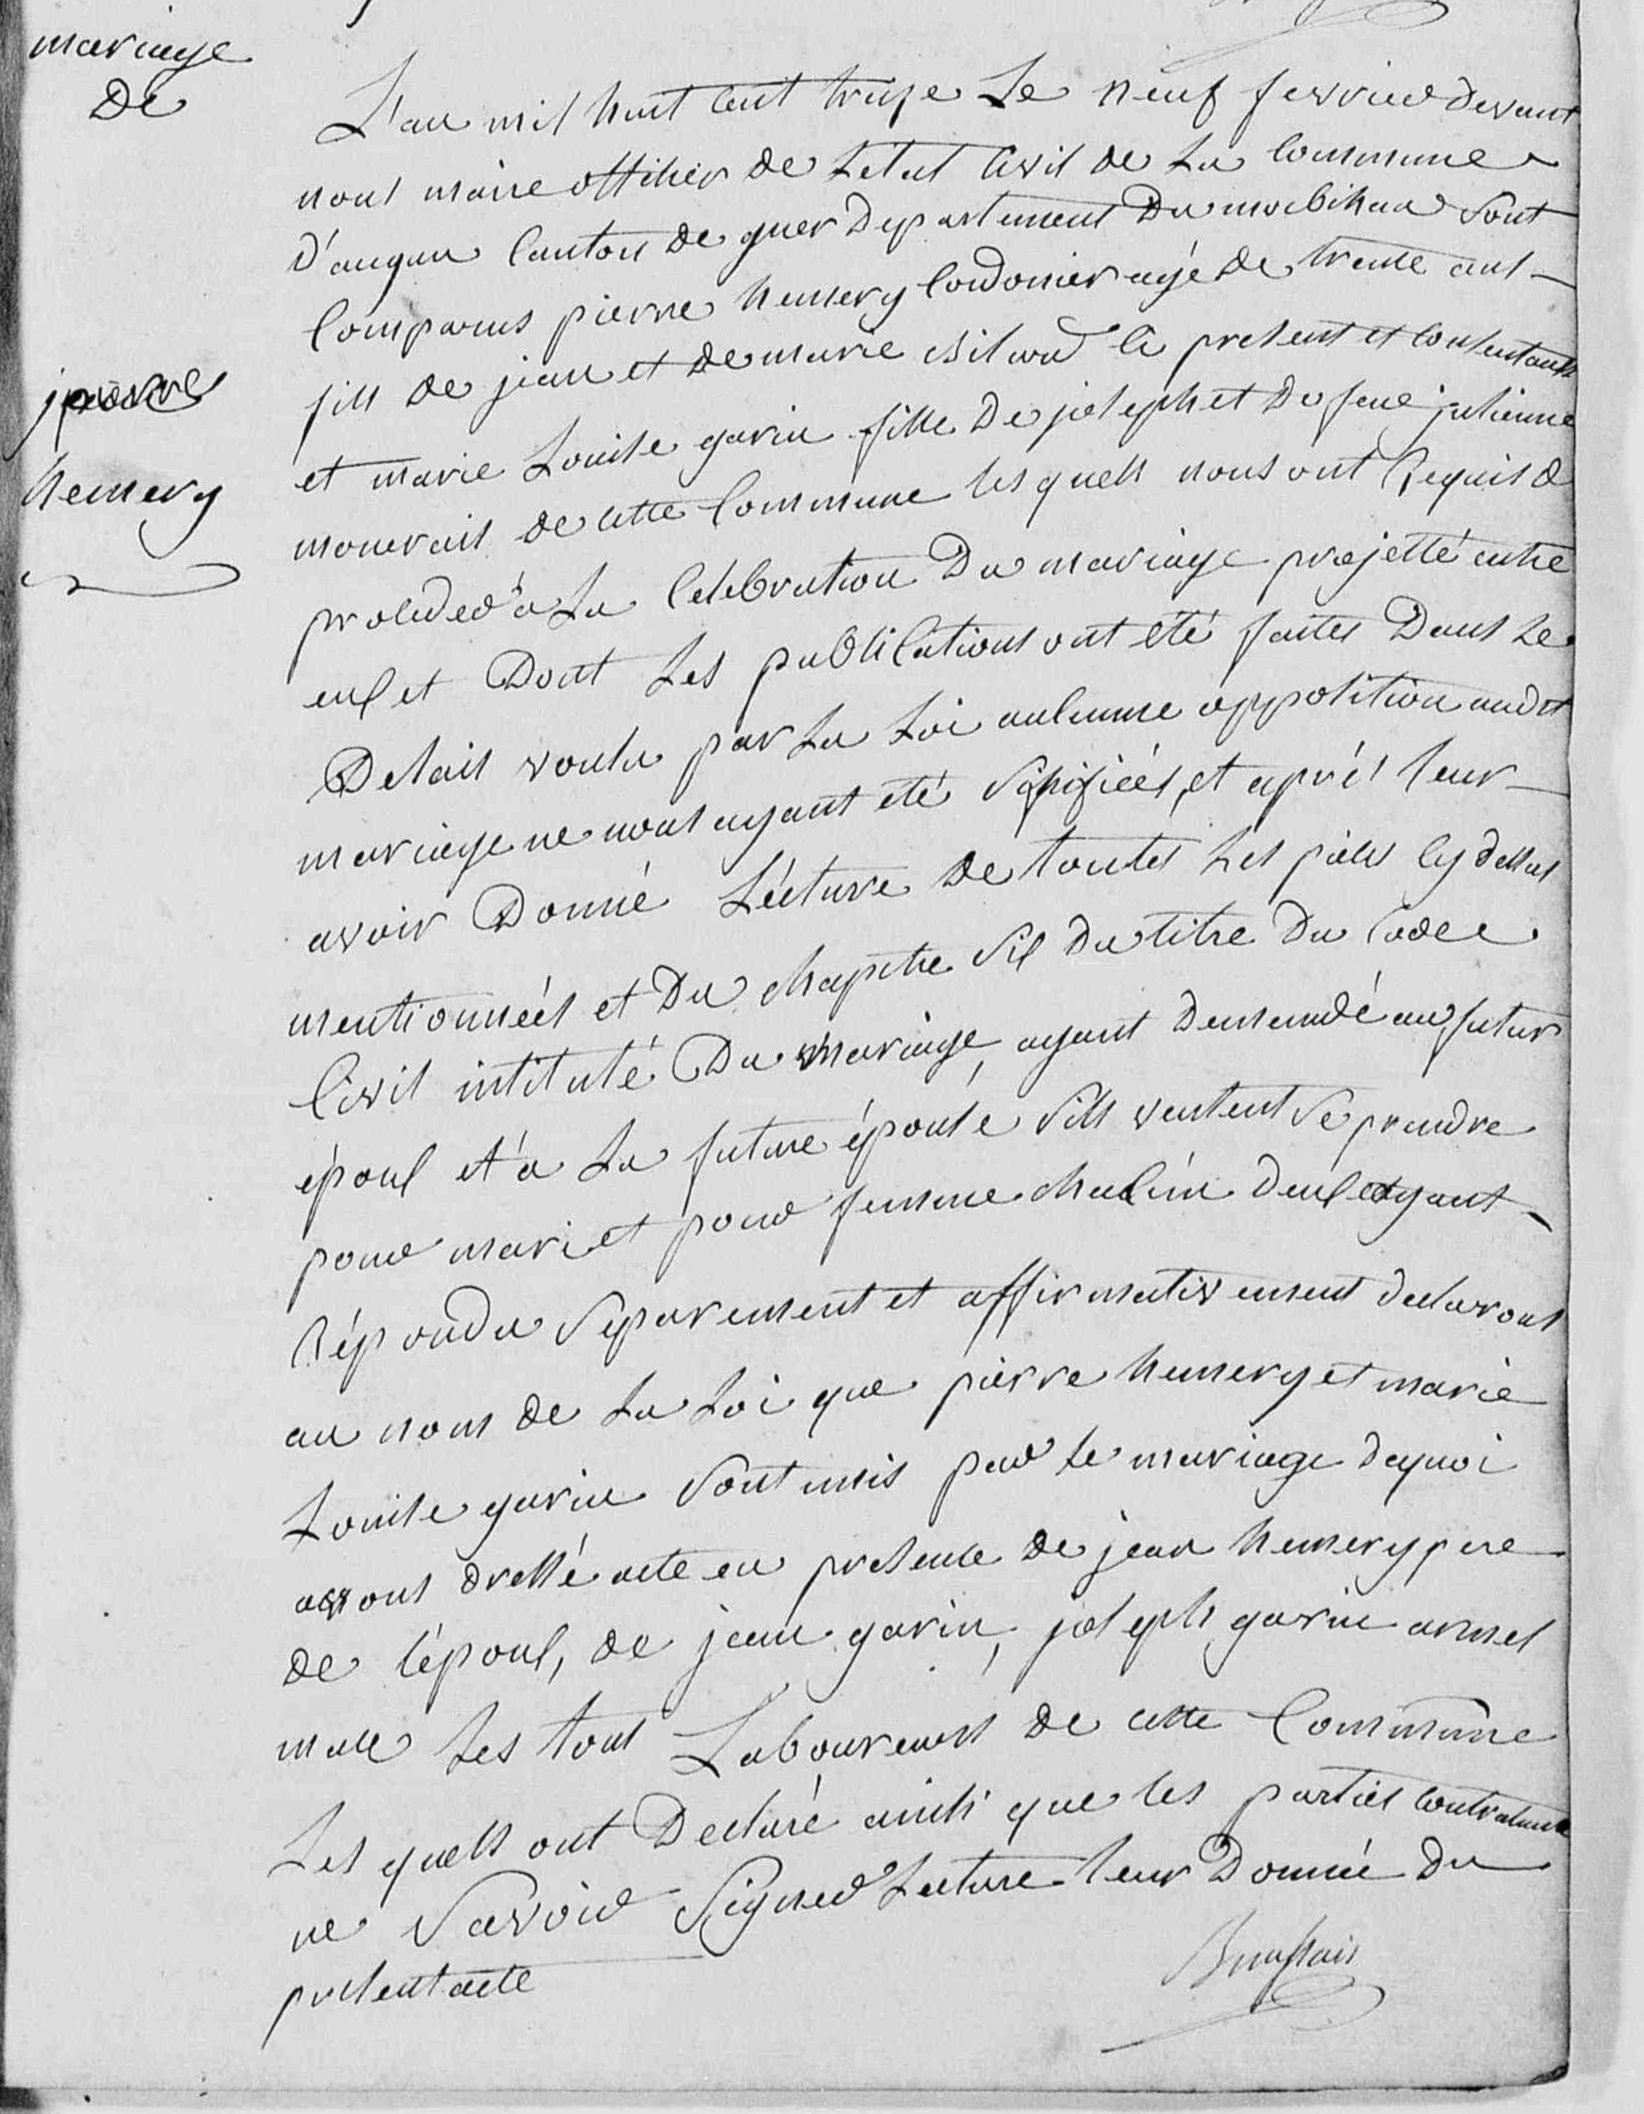 mariage
De
pierre
hemery
L'an mil huit cent treize Le neuf fevrier devant
nous maire officier de L'etat Civil de La Commune
d'augan Canton de guer Departement Du morbihan Sont
Comparus pierre hemery Cordonier agé de trente ans
fils de jean et de marie ci present et consentants
et marie Louise garin fille De joseph et De feue julienne
de cette Commune les quels nous ont Requis de
proceder à La Celebration Du mariage projetté entre
eux et Dont Les publications ont été faites Dans Le
Delais voulu par La Loi aucunne opposition audit
mariage ne nous ayant été Signifiées, et aprés leur
avoir Donné Lécture de toutes Les pieces cy dessus
mentionneés et Du chapitre Six Du titre Du Code
Civil intitulé Du Mariage, ayant demandé au futur
époux et à La future épouse Sils veulent Se prendre
pour mari et pour femme chacun deux ayant
Répondu Séparement et affirmativement declarons
au nom de La Loi que pierre hemery et marie
Louise garin Sont unis par Le mariage dequoi
avons dressé acte en presence de jean hemery pere
de l'époux, de jean garin, joseph garin armel
mace Les tous Laboureurs de cette Commune
Les quels ont Declaré ainsi que les parties contractante
ne Savoir Signer Lecture leur Donnée Du
present acte